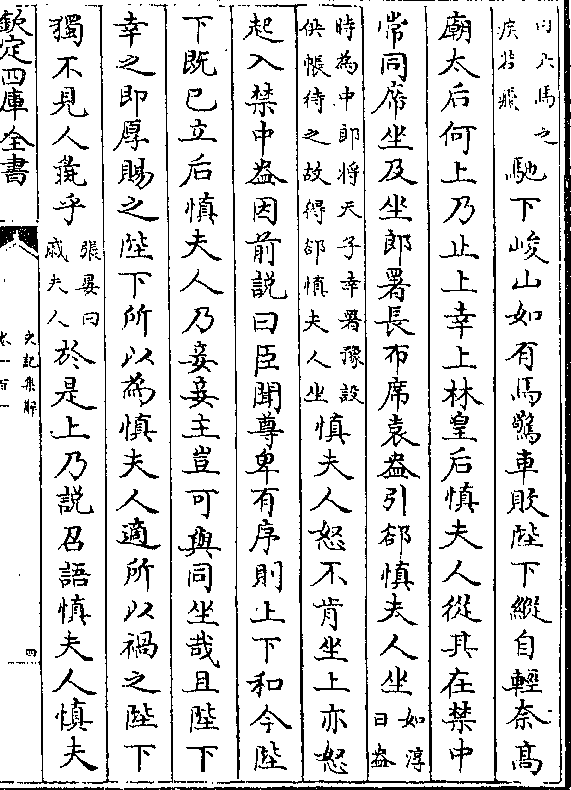 曰六馬之疾若飛馳下峻山如有馬驚車敗陛下縱自輕奈髙
廟太后何上乃止上幸上林皇后慎夫人從其在禁中
常同席坐及坐郎署長布席袁盎引郤慎夫人坐如淳曰盎
時為中郎將天子幸署豫設供帳待之故得郤慎夫人坐慎夫人怒不肯坐上亦怒
起入禁中盎因前説曰臣聞尊卑有序則上下和今陛
下既已立后慎夫人乃妾妾主豈可與同坐哉且陛下
幸之即厚賜之陛下所以為慎夫人適所以禍之陛下
獨不見人彘乎張晏曰戚夫人於是上乃説召語慎夫人慎夫
欽定四庫全書
史記集解
卷一百一
四